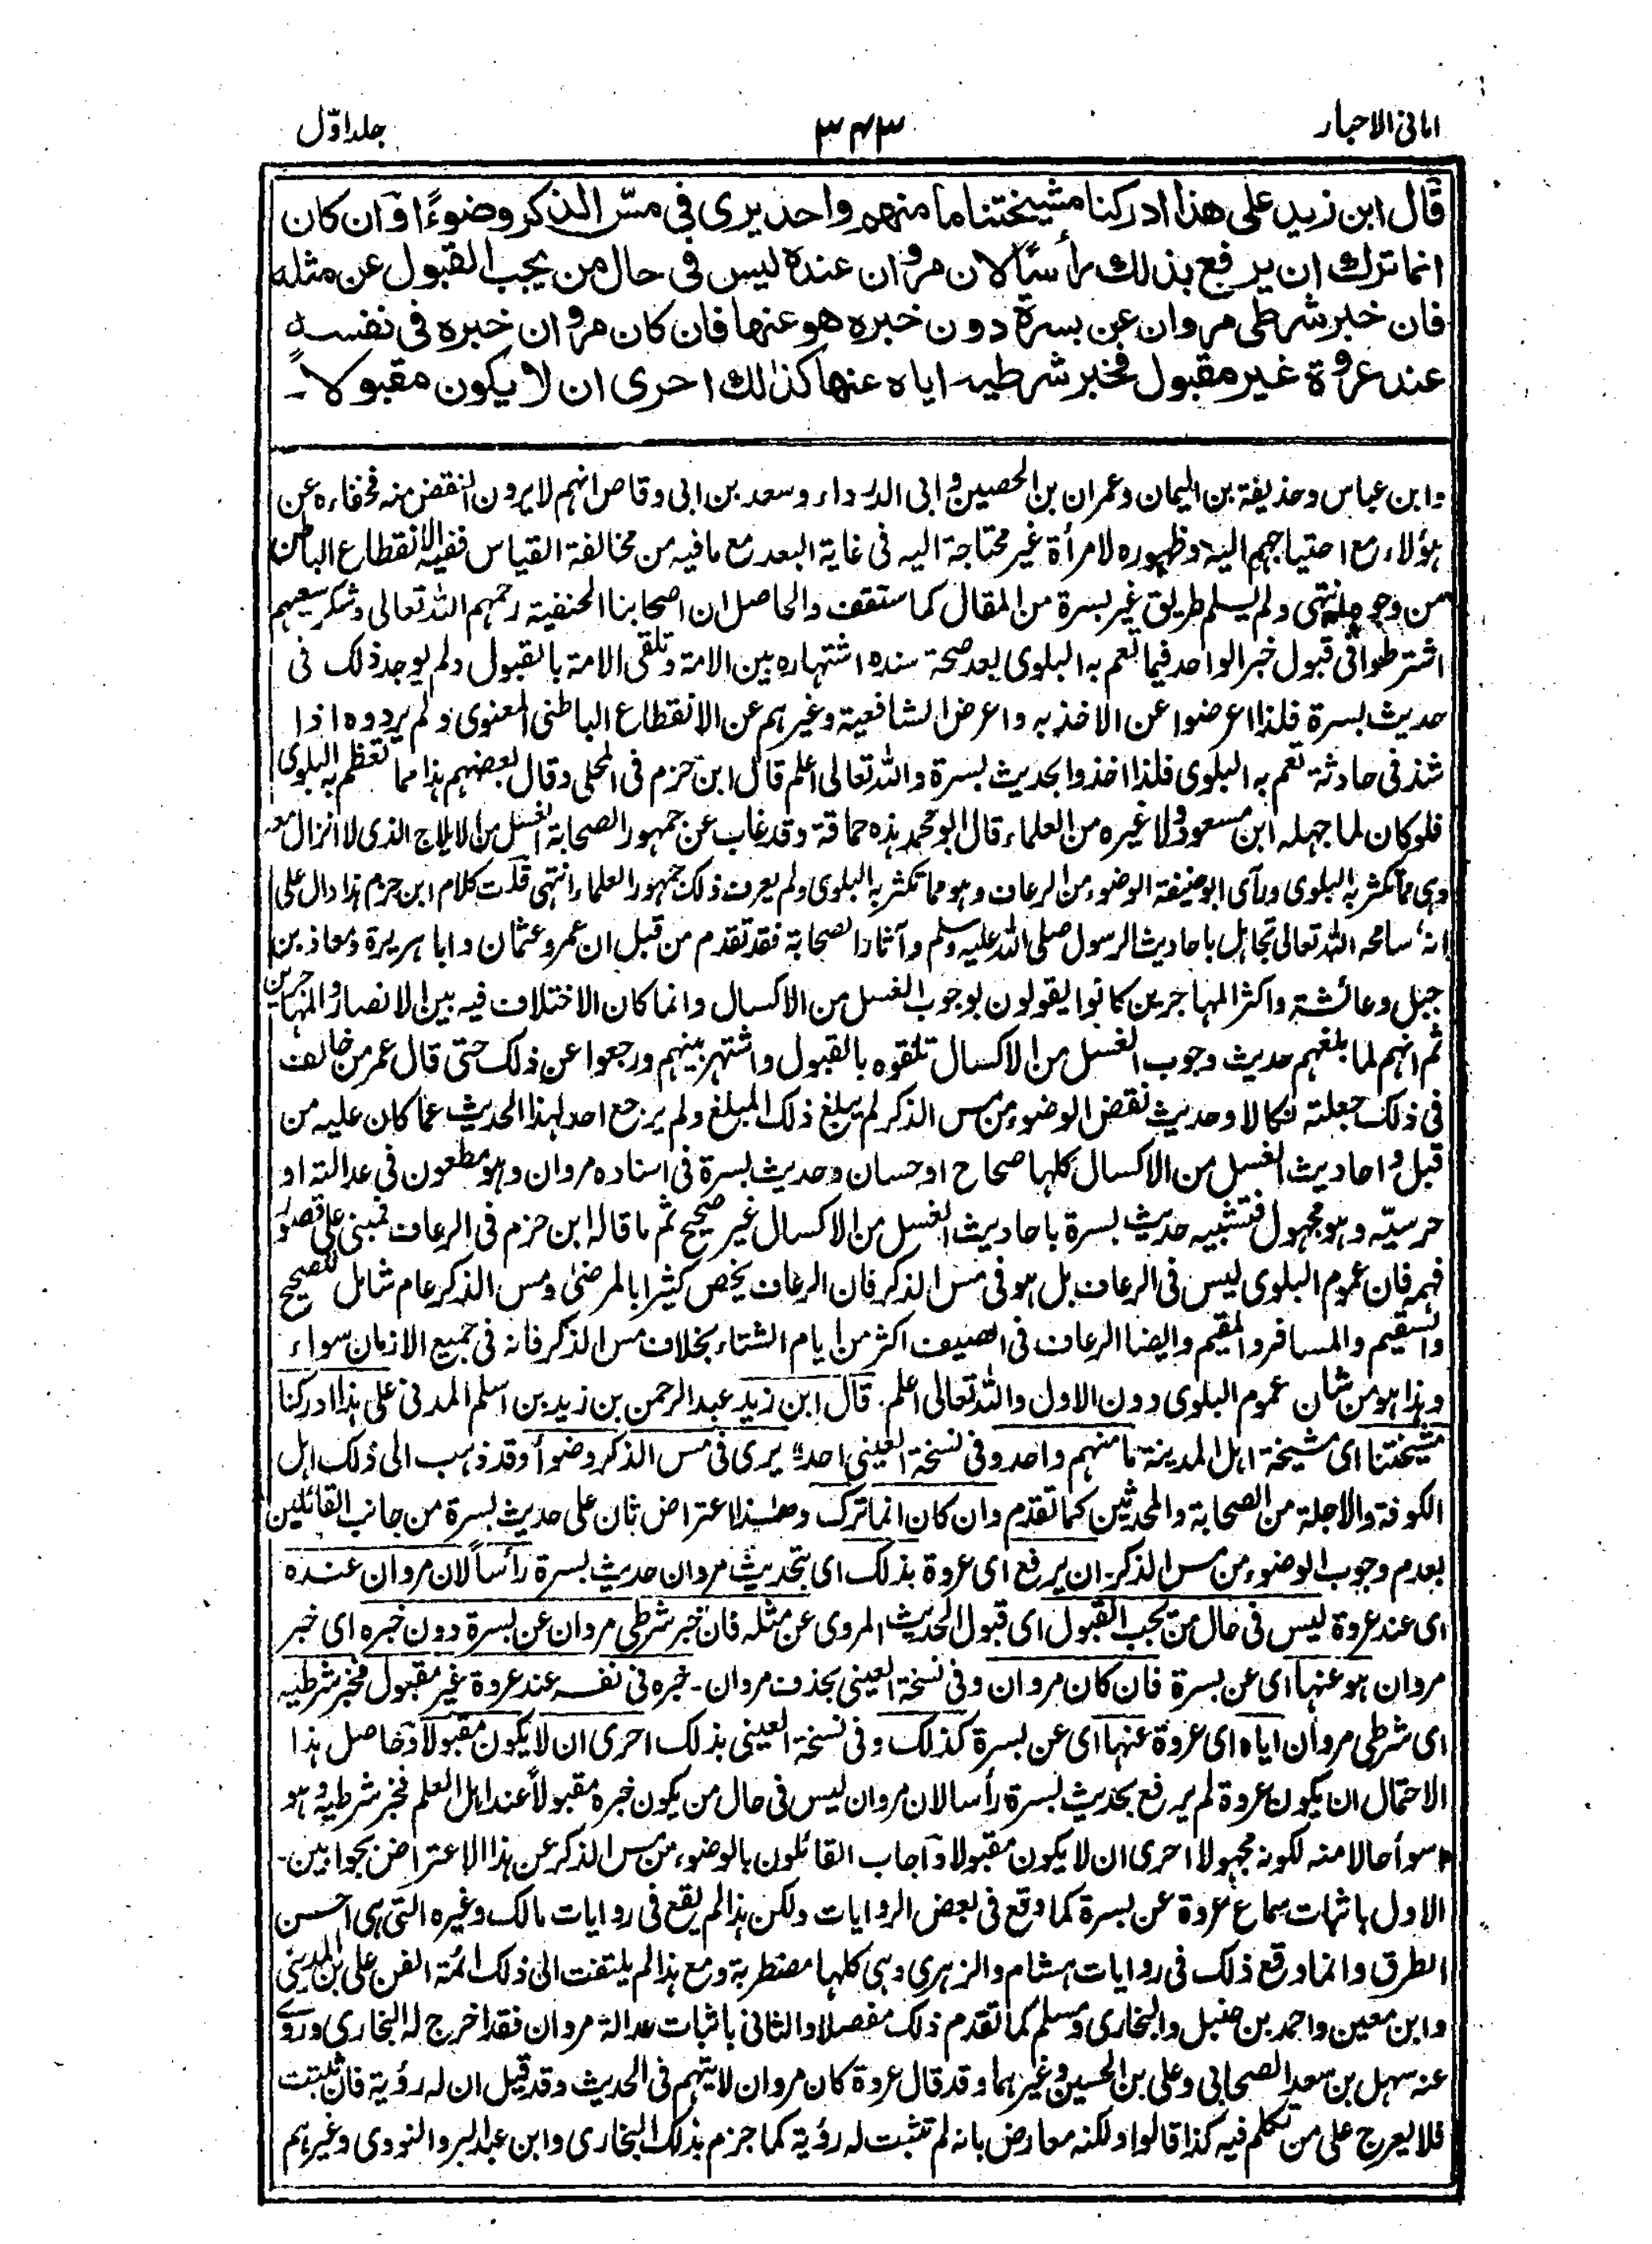 امانی الاحبار
۳۴۳
جلد اوّل
قال ابن زيد على هذا ادركنا مشيختنا ما منهم واحد يرى فى مسّ الذكر وضوءًا وان كان
انما ترك ان يرفع بذلك رأسًا لان مروان عنده ليس فى حال من يجب القبول عن مثله
فان خبر شرطى مروان عن بسرة دون خبره هو عنها فان كان مروان خبره فى نفسه
عند عروة غير مقبول فخبر شرطيه اياه عنها كذلك احرى ان لا يكون مقبولاً۔
وابن عباس وحذيفة بن اليمان وعمران بن الحصين وابى الدرداء وسعد بن ابى وقاص انهم لا يرون النقض منه فخفاءه عن
هؤلاء مع احتياجهم اليه وظهوره لامرأة غير محتاجة اليه فى غاية البعد مع ما فيه من مخالفة القياس ففيه الانقطاع الباطن
من وجوه انتهى ولم يسلم طريق غير بسرة من المقال كما ستقف والحاصل ان اصحابنا الحنفية رحمهم الله تعالى وشكر سعيهم
اشترطوا فى قبول خبر الواحد فيما تعم به البلوى بعد صحة سنده اشتهاره بين الامة وتلقى الامة بالقبول ولم يوجد ذلك فى
حديث بسرة فلذا اعرضوا عن الاخذ به واعرض الشافعية وغيرهم عن الانقطاع الباطنى المعنوى ولم يردوه اذا
شذ فى حادثة تعم به البلوى فلذا اخذوا بحديث بسرة والله تعالى اعلم قال ابن حزم فى المحلى وقال بعضهم هذا مما تعظم به البلوى
فلو كان لما جهله ابن مسعود ولا غيره من العلماء قال ابو محمد هذه حماقة وقد غاب عن جمهور الصحابة الغسل من الايلاج الذى لا انزال معه
وهى مما تكثر به البلوى ورأى ابو حنيفة الوضوء من الرعاف وهو مما تكثر به البلوى ولم يعرف ذلك جمهور العلماء انتهى قلت كلام ابن حزم هذا دال على
انه سامحه الله تعالى تجاهل باحاديث الرسول صلى الله عليه وسلم وآثار الصحابة فقد تقدم من قبل ان عمر وعثمان وابا هريرة ومعاذ بن
جبل وعائشة واكثر المهاجرين كانوا يقولون بوجوب الغسل من الاكسال وانما كان الاختلاف فيه بين الانصار والمهاجرين
ثم انهم لما بلغهم حديث وجوب الغسل من الاكسال تلقوه بالقبول واشتهر بينهم ورجعوا عن ذلك حتى قال عمر من خالف
فى ذلك جعلته نكالا وحديث نقض الوضوء من مس الذكر لم يبلغ ذلك المبلغ ولم يرجع احد لهذا الحديث عما كان عليه من
قبل واحاديث الغسل من الاكسال كلها صحاح او حسان وحديث بسرة فى اسناده مروان وهو مطعون فى عدالته او
حرسيّه وهو مجهول فتشبيه حديث بسرة باحاديث الغسل من الاكسال غير صحيح ثم ما قاله ابن حزم فى الرعاف فمبنى على قصور
فهمه فان عموم البلوى ليس فى الرعاف بل هو فى مس الذكر فان الرعاف يخص كثيرا بالمرضى ومس الذكر عام شامل للصحيح
والسقيم والمسافر والمقيم وايضا الرعاف فى الصيف اكثر من ايام الشتاء بخلاف مس الذكر فانه فى جميع الازمان سواء
وهذا هو من شان عموم البلوى دون الاول والله تعالى اعلم. قال ابن زيد عبد الرحمن بن زيد بن اسلم المدنى على هذا ادركنا
مشيختنا اى مشيخة اهل المدينة ما منهم واحد وفى نسخة العينى احد يرى فى مس الذكر وضوأ وقد ذهب الى ذلك اهل
الكوفة والاجلة من الصحابة والمحدثين كما تقدم وان كان انما ترك وهذا اعتراض ثان على حديث بسرة من جانب القائلين
بعدم وجوب الوضوء من مس الذكر۔ ان يرفع اى عروة بذلك اى بتحديث مروان حديث بسرة رأساً لان مروان عنده
اى عند عروة ليس فى حال من يجب القبول اى قبول الحديث المروى عن مثله فان خبر شرطى مروان عن بسرة دون خبره اى خبر
مروان هو عنها اى عن بسرة فان كان مروان وفى نسخة العينى بحذف مروان۔ خبره فى نفسه عند عروة غير مقبول فخبر شرطيه
اى شرطى مروان اياه اى عروة عنها اى عن بسرة كذلك وفى نسخة العينى بذلك احرى ان لا يكون مقبولا وحاصل هذا
الاحتمال ان يكون عروة لم يرفع بحديث بسرة رأسا لان مروان ليس فى حال من يكون خبره مقبولاً عند اهل العلم فخبر شرطيه وهو
اسوأ حالا منه لكونه مجهولا احرى ان لا يكون مقبولا وآجاب القائلون بالوضوء من مس الذكر عن هذا الاعتراض بجوابين۔
الاول باثبات سماع عروة عن بسرة كما وقع فى بعض الروايات ولكن هذا لم يقع فى روايات مالك وغيره التى هى احسن
الطرق وانما وقع ذلك فى روايات هشام والزهرى وهى كلها مضطربة ومع هذا لم يلتفت الى ذلك ائمة الفن على بن المدينى
وابن معين واحمد بن حنبل والبخارى ومسلم كما تقدم ذلك مفصلا والثانى باثبات عدالة مروان فقد اخرج له البخارى وروى
عنه سهل بن سعد الصحابى وعلى بن الحسين وغيرهما وقد قال عروة كان مروان لا يتهم فى الحديث وقد قيل ان له رؤية فان ثبتت
فلا يعرج على من تكلم فيه كذا قالوا ولكنه معارض بانه لم تثبت له رؤية كما جزم بذلك البخارى وابن عبد البر والنووى وغيرهم